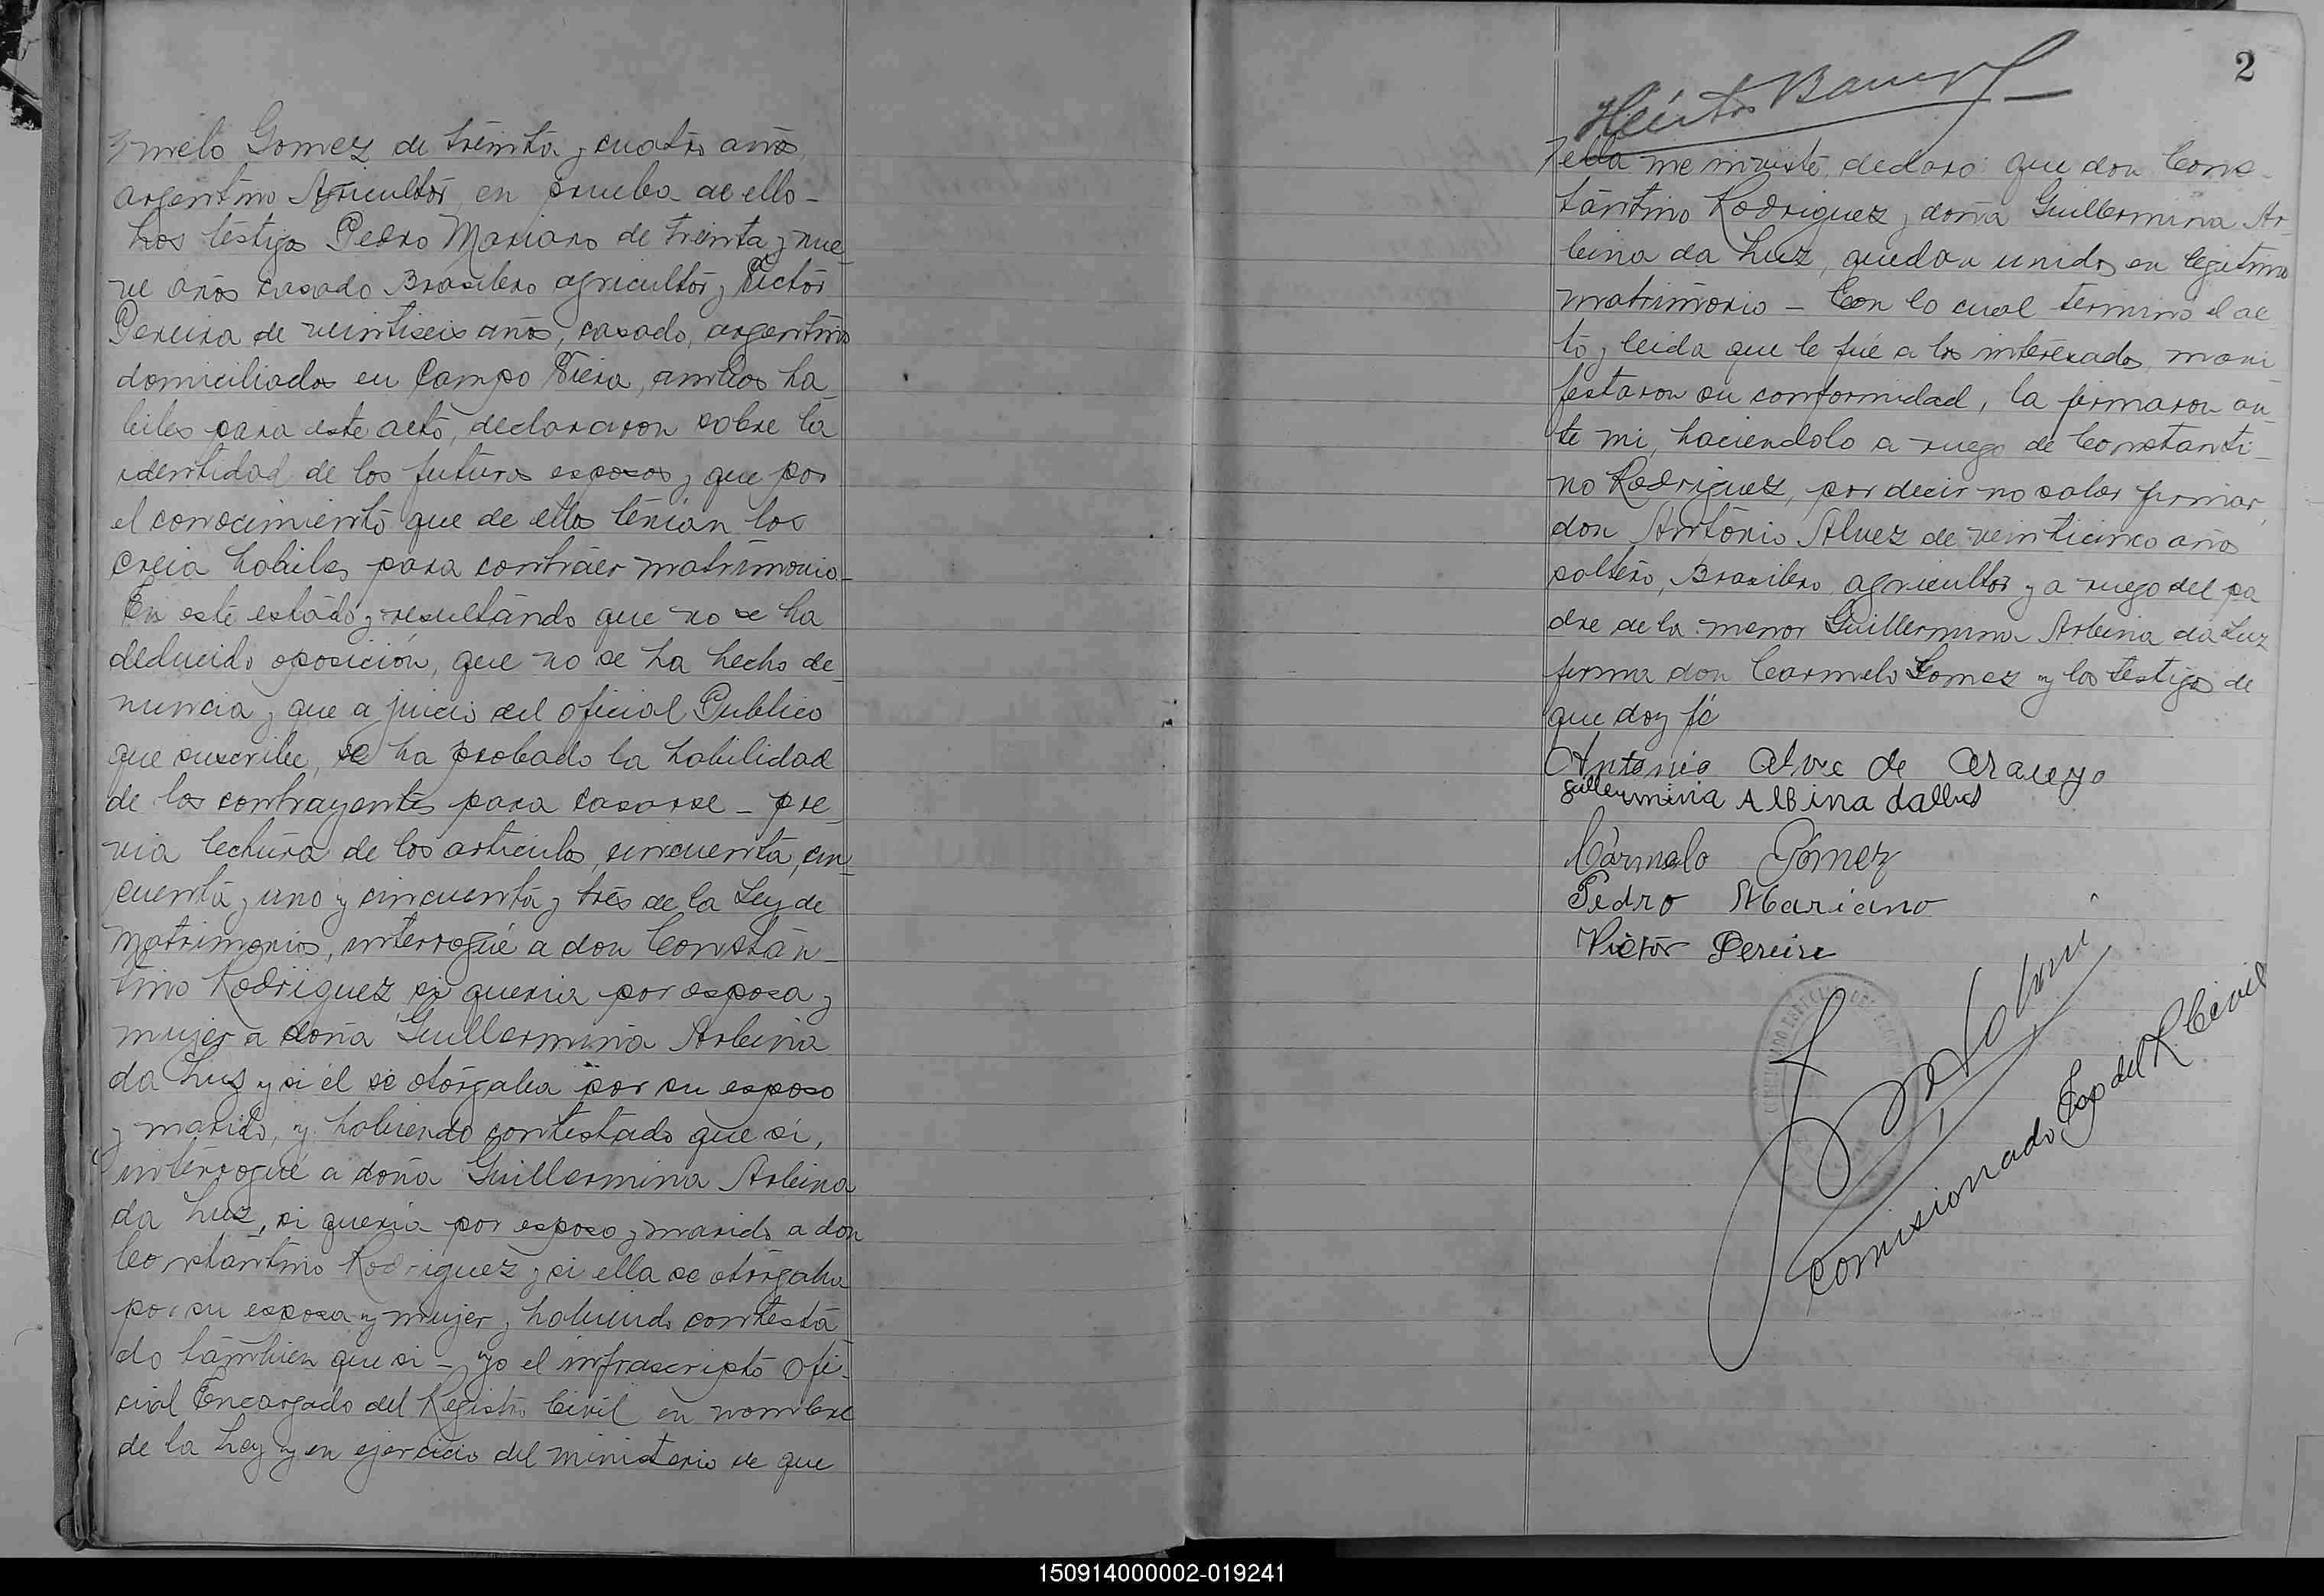 melo Gomez de treinta y cuatro años,
argentino Agricultor en prueba de ello -
Los testigos Pedro Mariano de treinta y nue-
ve años casado Brasilero agricultor y Victor
Pereira de veintiseis años, casado, argentino
domiciliados en Campo Viera, ambos ha-
biles para este acto, declararon sobre la
identidad de los futuros esposos y que por
el conocimiento que de ellos tenian los
creia habiles para contraer matrimonio -
En este estado y resultando que no se ha
deducido oposición, que no se ha hecho de-
nuncia y que a juicio del oficial Publico
que suscribe, se ha probado la habilidad
de los contrayentes para casarse - pre-
via lectura de los articulos, cincuenta, cin-
cuenta y uno y cincuenta y tres de la Ley de
Matrimonios, interrogué a don Constán-
tino Rodriguez si queria por esposa y
mujer a doña Guillermina Arbina
da Luz y si él se otorgaba por su esposo
y marido, y habiendo contestado que si,
interrogué a doña Guillermina Arbina
da Luz, si queria por esposo y marido a don
Constantino Rodriguez y si ella se otorgaba
por su esposa y mujer y habiendo contesta-
do tambien que si - yo el infrascripto Ofi-
cial Encargado del Registro Civil en nombre
de la Ley y en ejercicio del ministerio de que
2
Héctor
ella me inviste, declaro: que don Cons-
tántino Rodriguez y doña Guillermina Ar-
bina da Luz, quedan unidos en legitimo
matrimonio - Con lo cual termino el ac-
to y leida que le fué a los interesados, mani-
festaron su conformidad, la firmaron an-
te mi, haciendolo a ruego de Constanti-
no Rodriguez, por decir no saber firmar,
don Antonio Alvez de veinticinco años
soltero, Brasilero, agricultor y a ruego del pa
dre de la menor Guillermina Arbina da Luz
firma don Carmelo Gomez y los testigos de
que doy fé
Antonio Alve de Araueyo
guillermina AlBina dalluz
Cármelo Gómez
Pedro Mariano
Victor Pereira
Comisionado Esp del R Civil
150914000002-019241